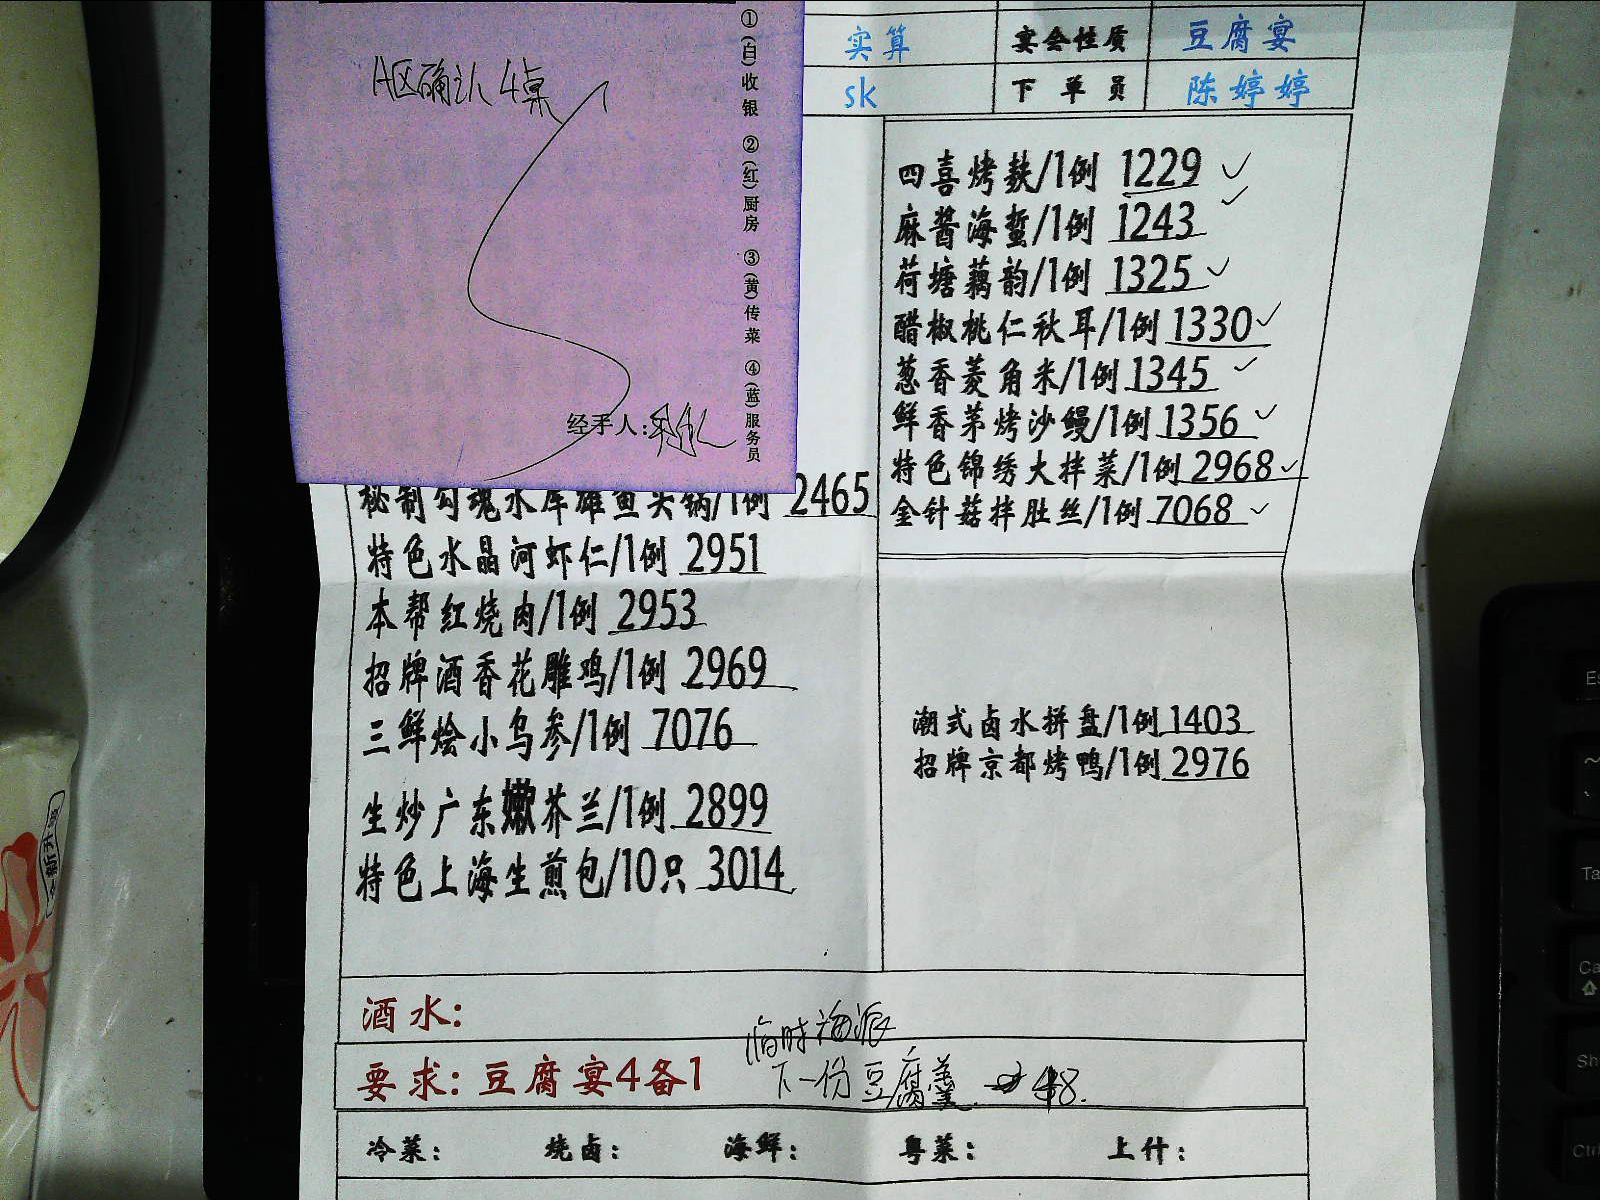 A区确认4桌
①(白)收银 ②(红)厨房 ③(黄)传菜 ④(蓝)服务员
经手人:
实算 宴会性质 豆腐宴
sk 下单员 陈婷婷
四喜烤麸/1例 1229
麻酱海蜇/1例 1243
荷塘藕韵/1例 1325
醋椒桃仁秋耳/1例 1330
葱香菱角米/1例 1345
鲜香茅烤沙鳗/1例 1356
特色锦绣大拌菜/1例 2968
金针菇拌肚丝/1例 7068
秘制勾魂水库雄鱼头锅/1例 2465
特色水晶河虾仁/1例 2951
本帮红烧肉/1例 2953
招牌酒香花雕鸡/1例 2969
三鲜烩小乌参/1例 7076
生炒广东嫩芥兰/1例 2899
特色上海生煎包/10只 3014
潮式卤水拼盘/1例 1403
招牌京都烤鸭/1例 2976
酒水:
临时海派
要求: 豆腐宴4备1
下一份豆腐羹 48.
冷菜: 烧卤: 海鲜: 粤菜: 上什:
新升
Es
Ta
Ca
Sh
Ctrl